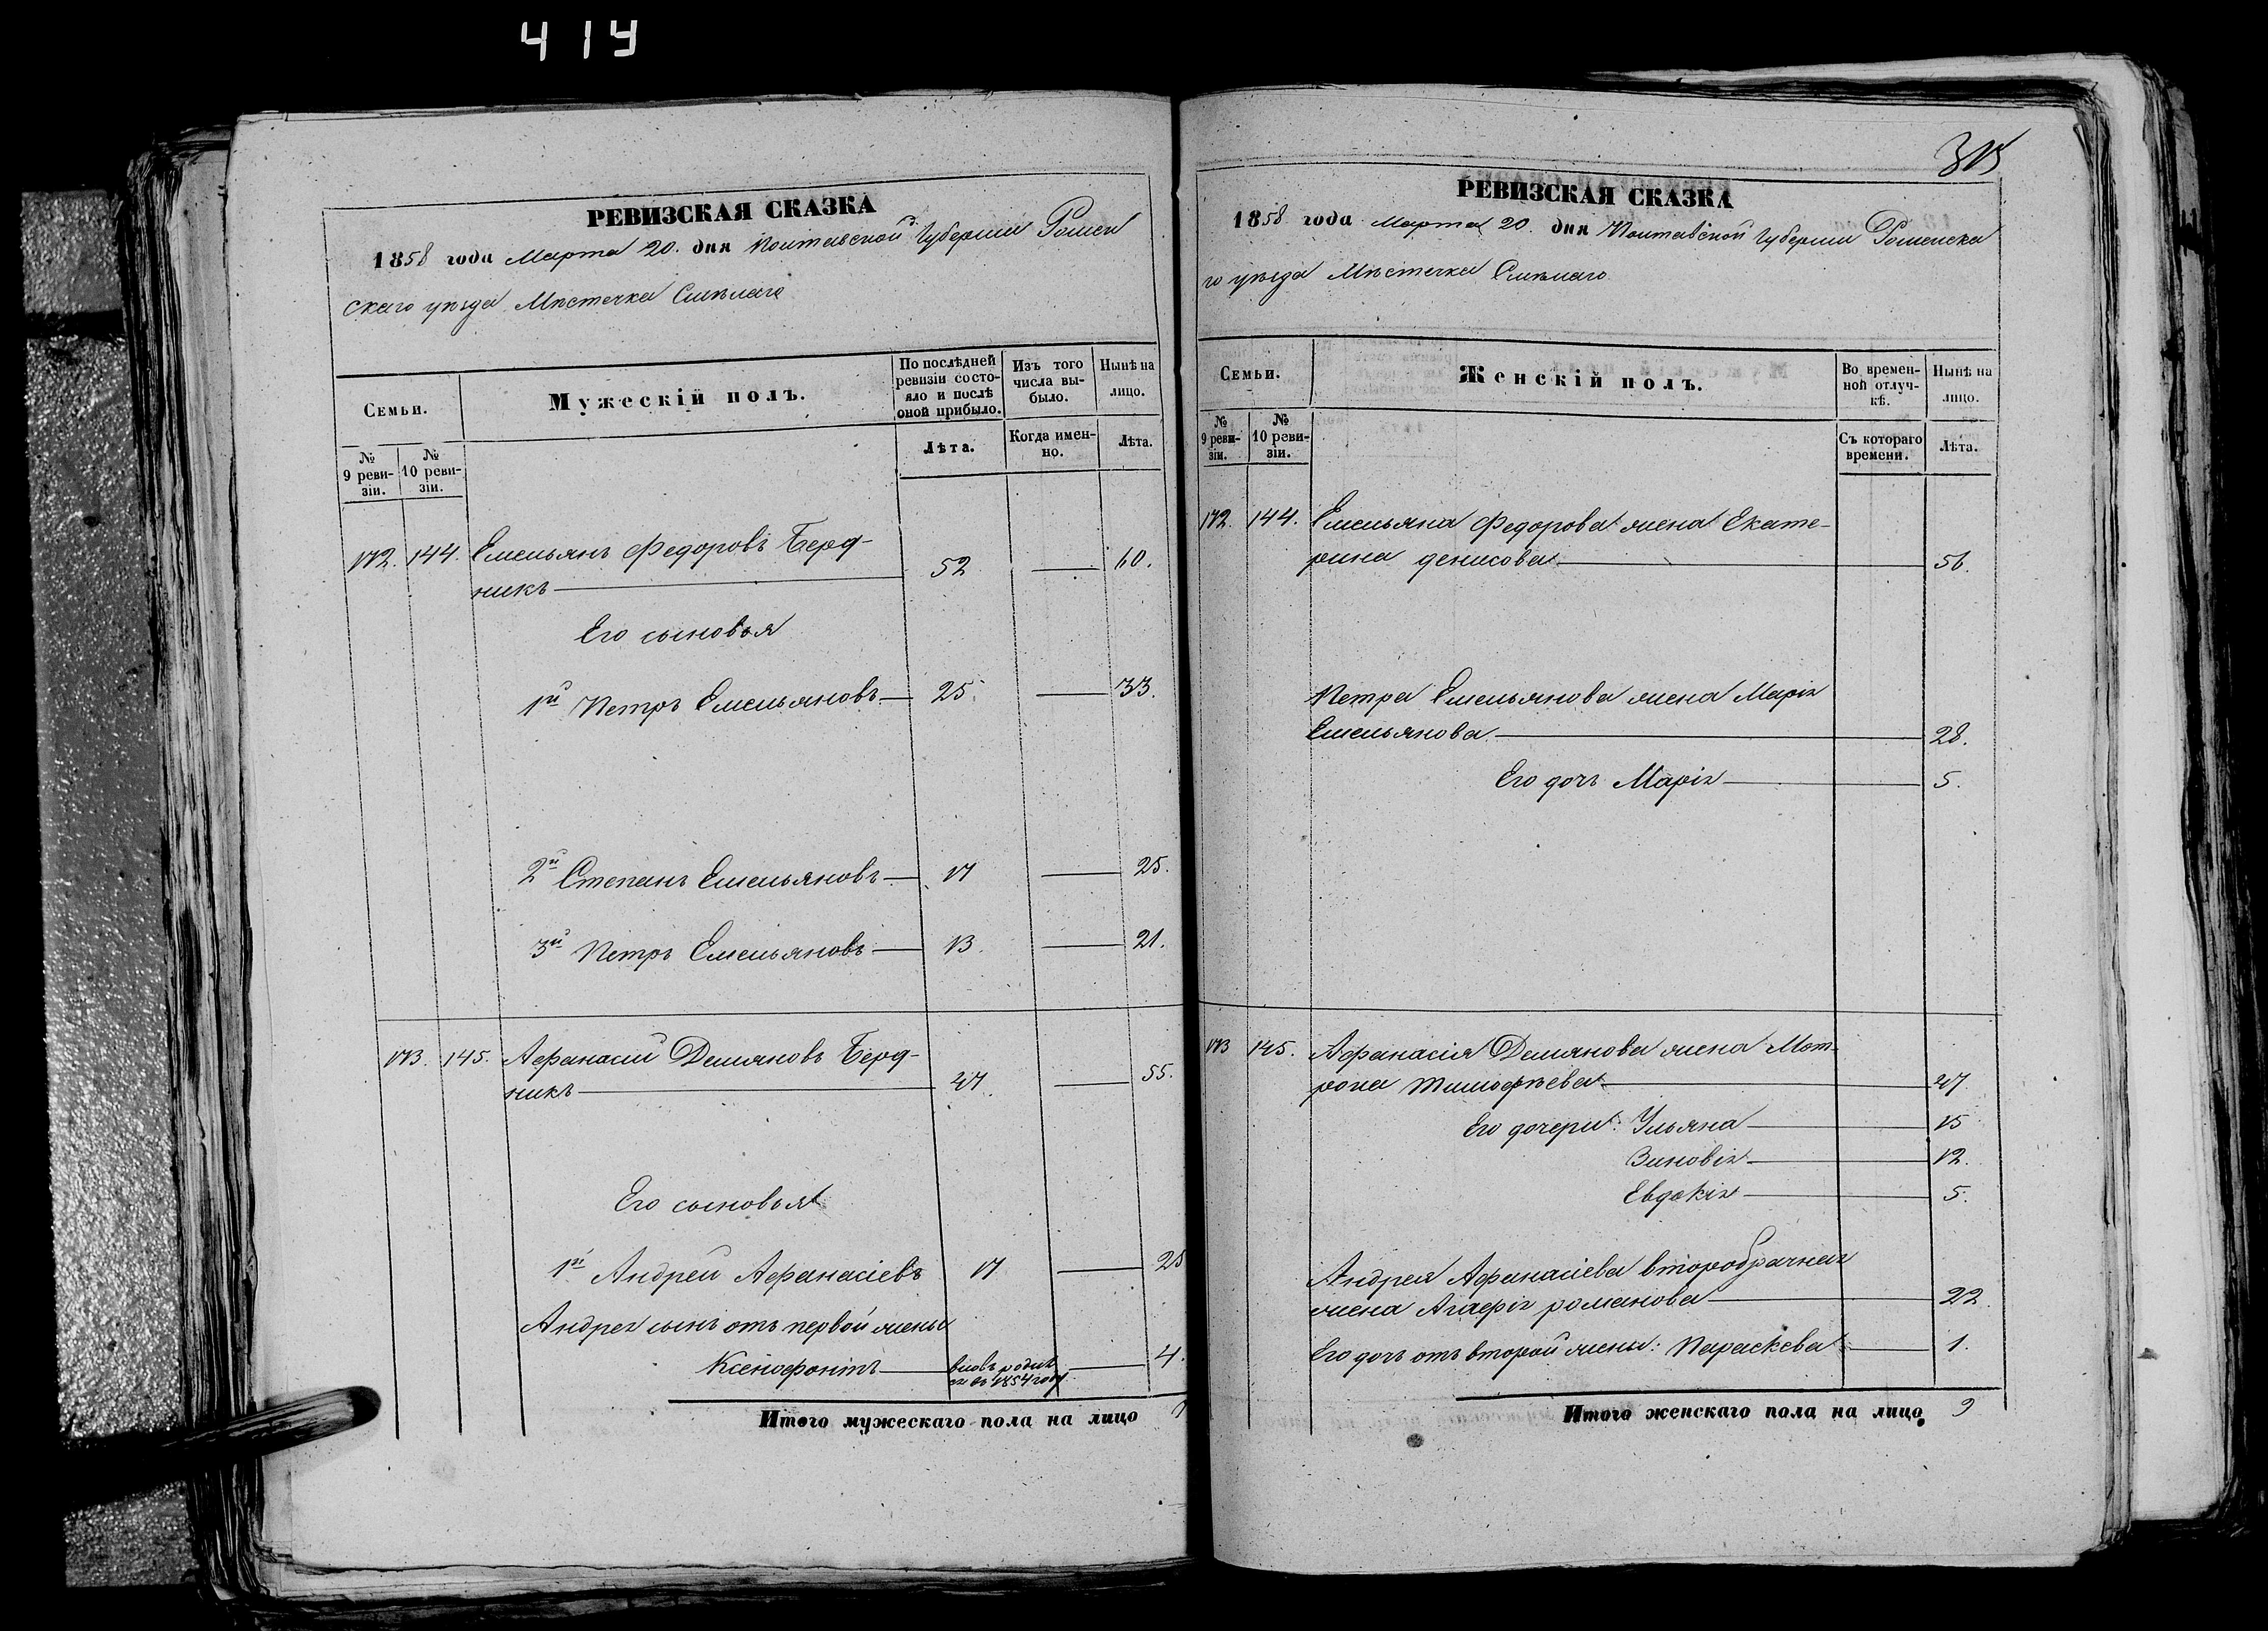 419
РЕВИЗСКАЯ СКАЗКА
1858 года Марта 20. дня Полтавской Губернии Ромен
скаго уѣзда Мѣстечка Смѣлаго
Семьи.
Мужескій полъ.
По послѣдней ревизіи состояло и послѣ оной прибыло.
Изъ того числа выбыло.
Нынѣ на лицо.
№ 9 ревизіи.
№ 10 ревизіи.
Лѣта.
Когда именно.
Лѣта.
172. 144. Емельянъ Федоровъ Берд-
никъ 52 60.
Его сыновья
1й Петръ Емельяновъ 25 33.
2й Степанъ Емельяновъ 17 25.
3й Петръ Емельяновъ 13. 21.
173. 145. Афанасий Демяновъ Берд-
никъ 47 55.
Его сыновья
1й Андрей Афанасіевъ 17 25
Андрея сынъ отъ первой жены
Ксенофонтъ вновь родил
ся въ 1854 году 4.
Итого мужескаго пола на лицо
315
РЕВИЗСКАЯ СКАЗКА
1858 года Марта 20. дня Полтавской Губернии Роменска
го уѣзда Мѣстечка Смѣлаго
Семьи.
Женскій полъ.
Во временной отлучкѣ.
Нынѣ на лицо.
№ 9 ревизіи.
№ 10 ревизіи.
Съ котораго времени.
Лѣта.
172. 144. Емельяна Федорова жена Екате-
рина Денисова 56.
Петра Емельянова жена Марія
Емельянова 28.
Его дочь Марія 5.
173 145. Афанасія Демянова жена Мот-
рона Тимофѣева 47
Его дочери: Ульяна 15
Зиновія 12.
Евдокія 5.
Андрея Афанасіева второбрачная
жена Агафія Романова 22
Его дочь отъ второй жены: Параскева 1.
Итого женскаго пола на лицо 9